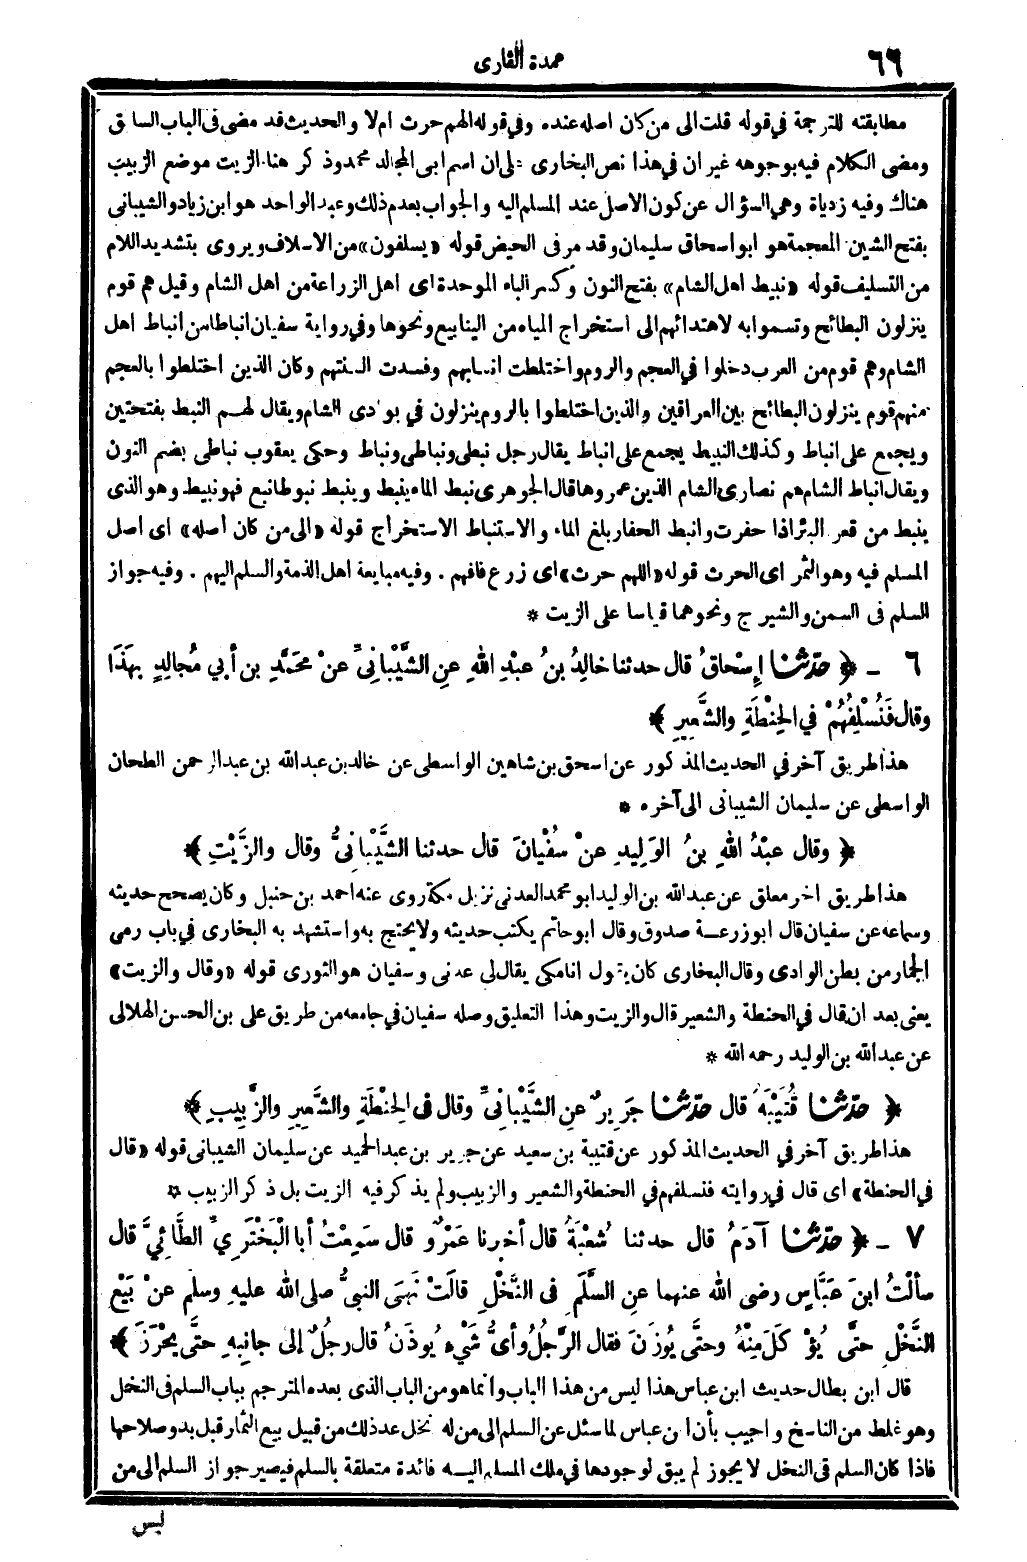 ٦٦
عمدة القارى
مطابقته للترجمة في قوله قلت الى من كان اصله عنده وفي قوله الهم حرث ام لا والحديث قد مضى فى الباب السابق
ومضى الكلام فيه بوجوهه غير ان في هذا نص البخارى على ان اسم ابى المجالد محمد وذكر هنا الزيت موضع الزبيب
هناك وفيه زدياة وهي السؤال عن كون الاصل عند المسلم اليه والجواب بعدم ذلك وعبد الواحد هو ابن زياد والشيبانى
بفتح الشين المعجمة هو ابو اسحاق سليمان وقد مر فى الحيض قوله «يسلفون» من الاسلاف ويروى بتشديد اللام
من التسليف قوله «نبيط اهل الشام» بفتح النون وكسر الباء الموحدة اى اهل الزراعة من اهل الشام وقيل هم قوم
ينزلون البطائح وتسموا به لاهتدائهم الى استخراج المياه من الينابيع ونحوها وفي رواية سفيان انباط من انباط اهل
الشام وهم قوم من العرب دخلوا في العجم والروم واختلطت انسابهم وفسدت السنتهم وكان الذين اختلطوا بالعجم
منهم قوم ينزلون البطائح بين العراقين والذين اختلطوا بالروم ينزلون في بوادى الشام ويقال لهم النبط بفتحتين
ويجمع على انباط وكذلك النبيط يجمع على انباط يقال رجل نبطى ونباطى ونباط وحكى يعقوب نباطى بضم النون
ويقال انباط الشام هم نصارى الشام الذين عمروها قال الجوهرى نبط الماء ينبط وينبط نبوطا نبع فهو نبيط وهو الذى
ينبط من قعر البئر اذا حفرت وانبط الحفار بلغ الماء والاستنباط الاستخراج قوله «الى من كان أصله» اى اصل
المسلم فيه وهو الثمر اى الحرث قوله «اللهم حرث» اى زرع فافهم . وفيه مبايعة اهل الذمة والسلم اليهم . وفيه جواز
السلم فى السمن والشيرج ونحوهما قياسا على الزيت *
٦ ـ ﴿ حدّثنا إِسْحاقُ قال حدثنا خالِدُ بنُ عبْدِ اللهِ عنِ الشَّيْبانِىِّ عنْ محمَّدِ بن أبي مُجالِدٍ بِهَذَا
وقال فَنُسْلِفُهُمْ في الحِنْطَةِ والشَّعِيرِ ﴾
هذا طريق آخر في الحديث المذكور عن اسحق بن شاهين الواسطى عن خالد بن عبد الله بن عبد الرحمن الطحان
الواسطى عن سليمان الشيبانى الى آخره *
﴿ وقال عبْدُ اللهِ بنُ الوَلِيدِ عنْ سُفْيانَ قال حدثنا الشَّيْبانِىُّ وقال والزَّيْتِ ﴾
هذا طريق اخر معلق عن عبد الله بن الوليد ابو محمد العدنى نزيل مكة روى عنه احمد بن حنبل وكان يصحح حديثه
وسماعه عن سفيان قال ابو زرعة صدوق وقال ابو حاتم يكتب حديثه ولا يحتج به واستشهد به البخارى في باب رمى
الجمار من بطن الوادى وقال البخارى كان يقول انا مكى يقال لى عدنى وسفيان هو الثورى قوله «وقال والزيت»
يعنى بعد ان قال في الحنطة والشعير قال والزيت وهذا التعليق وصله سفيان في جامعه من طريق على بن الحسن الهلالى
عن عبد الله بن الوليد رحمه الله *
﴿ حدّثنا قُتَيْبَةُ قال حدّثنا جَرِيرٌ عنِ الشَّيْبانِىِّ وقال فى الحِنْطَةِ والشَّعِيرِ والزَّبِيبِ ﴾
هذا طريق آخر في الحديث المذكور عن قتيبة بن سعيد عن جرير بن عبد الحميد عن سليمان الشيبانى قوله «قال
في الحنطة» اى قال في روايته فنسلفهم في الحنطة والشعير والزبيب ولم يذكر فيه الزيت بل ذكر الزبيب *
٧ ـ ﴿ حدّثنا آدَمُ قال حدثنا شُعْبَةُ قال أخبرنا عَمْرٌو قال سَمِعْتُ أبا الْبَخْتَرِيِّ الطَّائِيَّ قال
سألْتُ ابنَ عَبَّاسٍ رضى الله عنهما عنِ السَّلَمِ فى النَّخْلِ قالَتْ نَهَى النبيُّ صلى الله عليهِ وسلم عنْ بَيْعِ
النَّخْلِ حتَّى يُؤْكَلَ مِنْهُ وحتَّى يُوزَنَ فقال الرَّجُلُ وأىُّ شَيْءٍ يُوذَنُ قال رجُلٌ إلى جانِبِهِ حتَّى يحْرَزَ ﴾
قال ابن بطال حديث ابن عباس هذا ليس من هذا الباب وانما هو من الباب الذى بعده المترجم بباب السلم فى النخل
وهو غلط من الناسخ واجيب بأن ابن عباس لما سئل عن السلم الى من له نخل عد ذلك من قبيل بيع الثمار قبل بدو صلاحها
فاذا كان السلم فى النخل لا يجوز لم يبق لوجودها في ملك المسلم اليه فائدة متعلقة بالسلم فيصير جواز السلم الى من
ليس